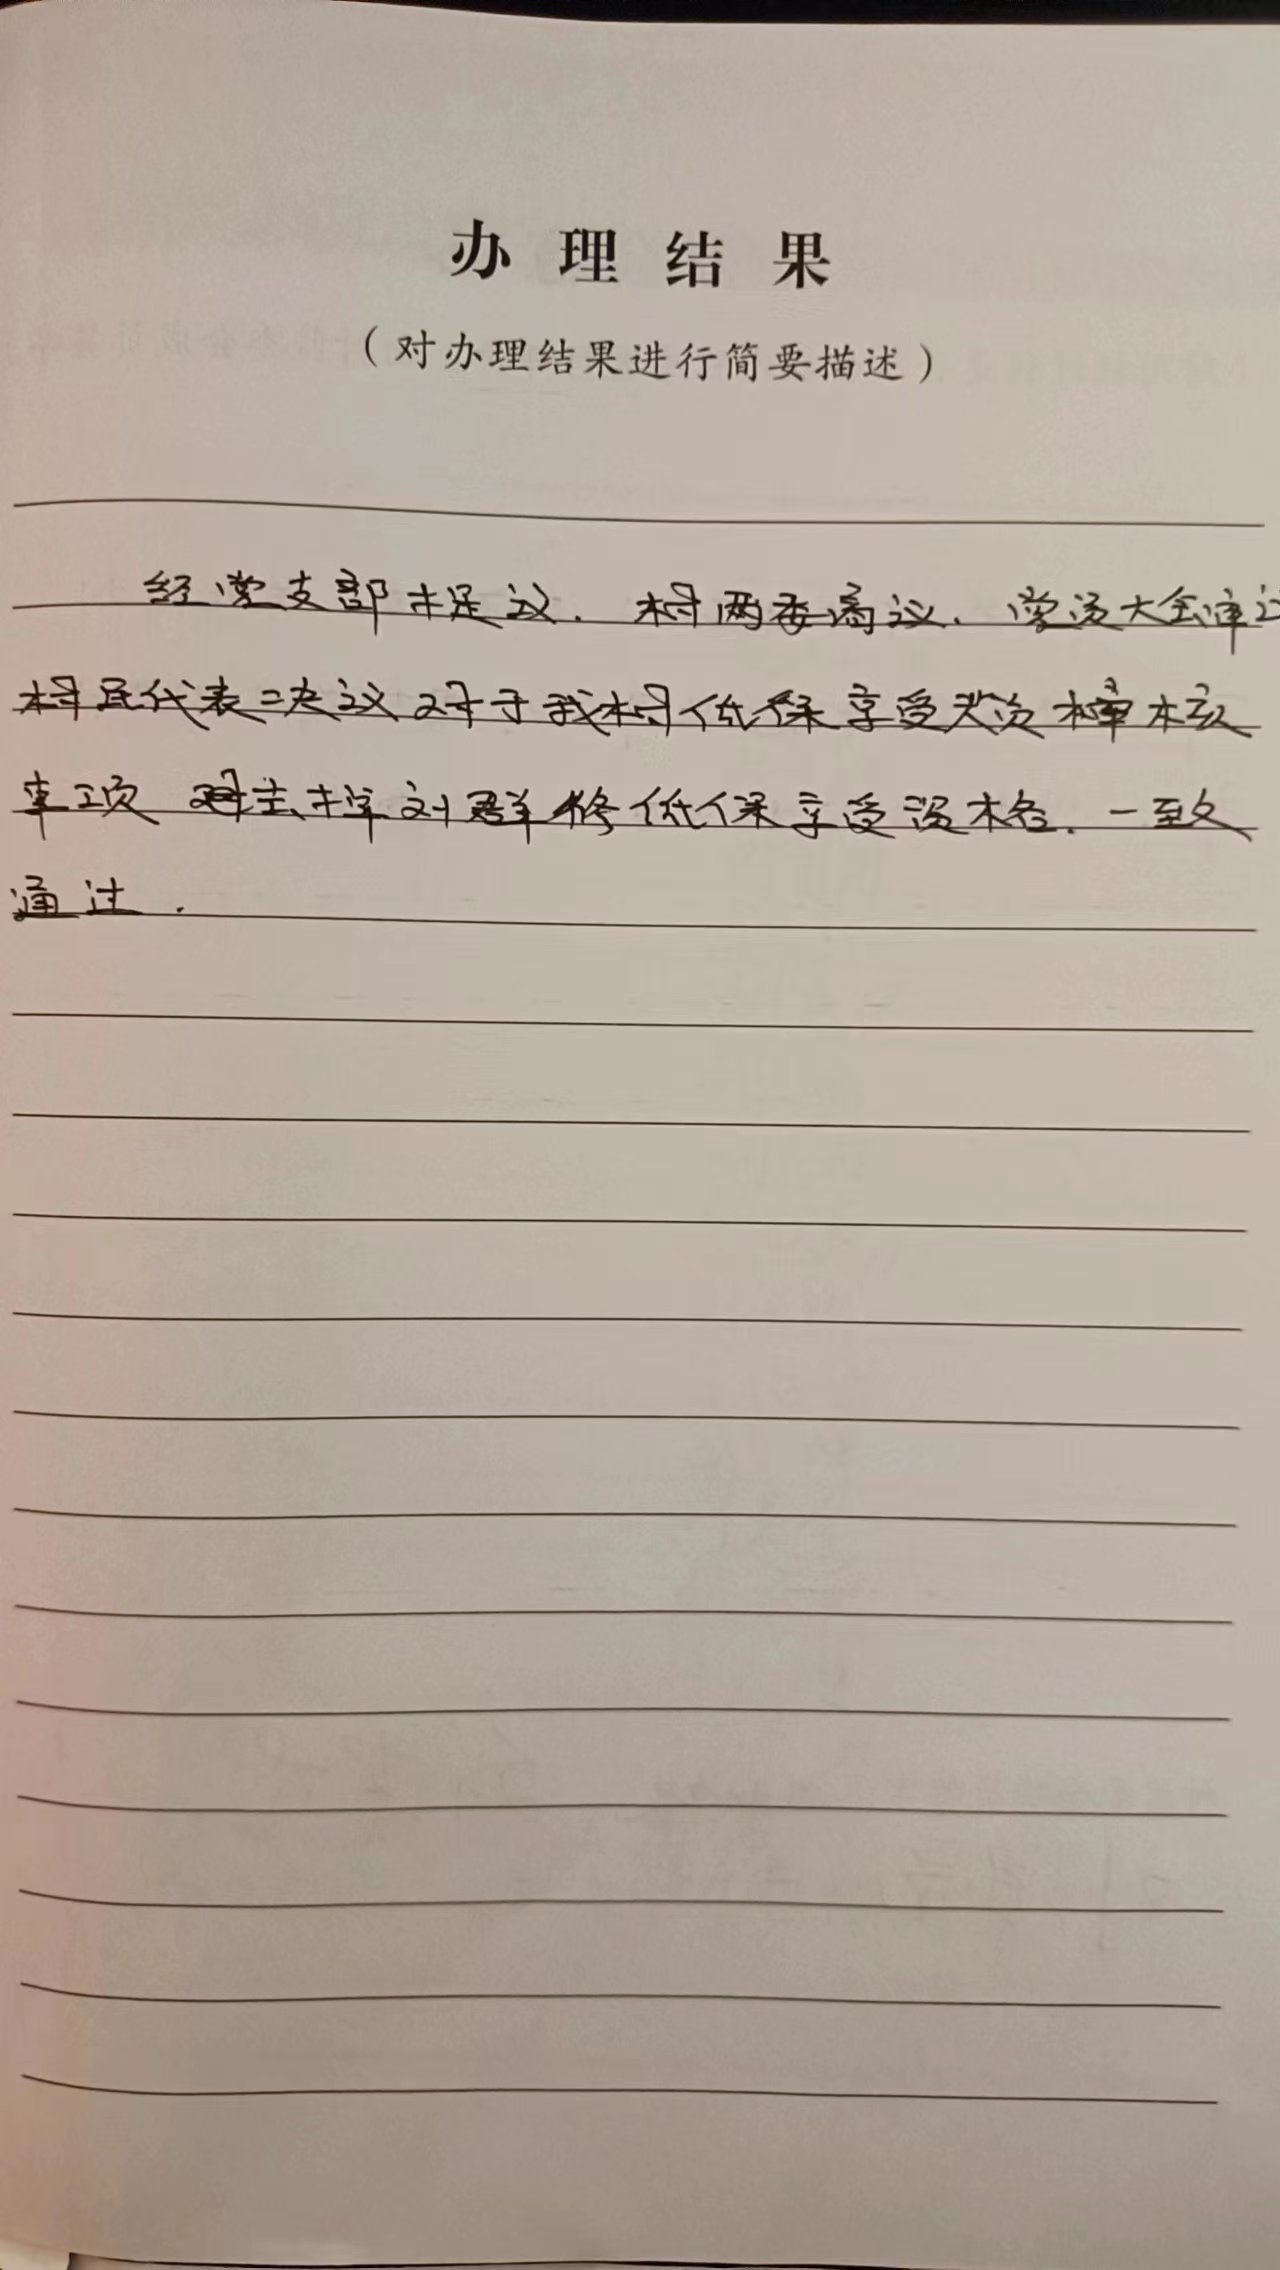 办理结果
(对办理结果进行简要描述)
经党支部提议. 村两委商议. 党员大会审议
村民代表决议对于我村低保享受人员审核
事项 取去掉刘群修低保享受资格. 一致
通过.